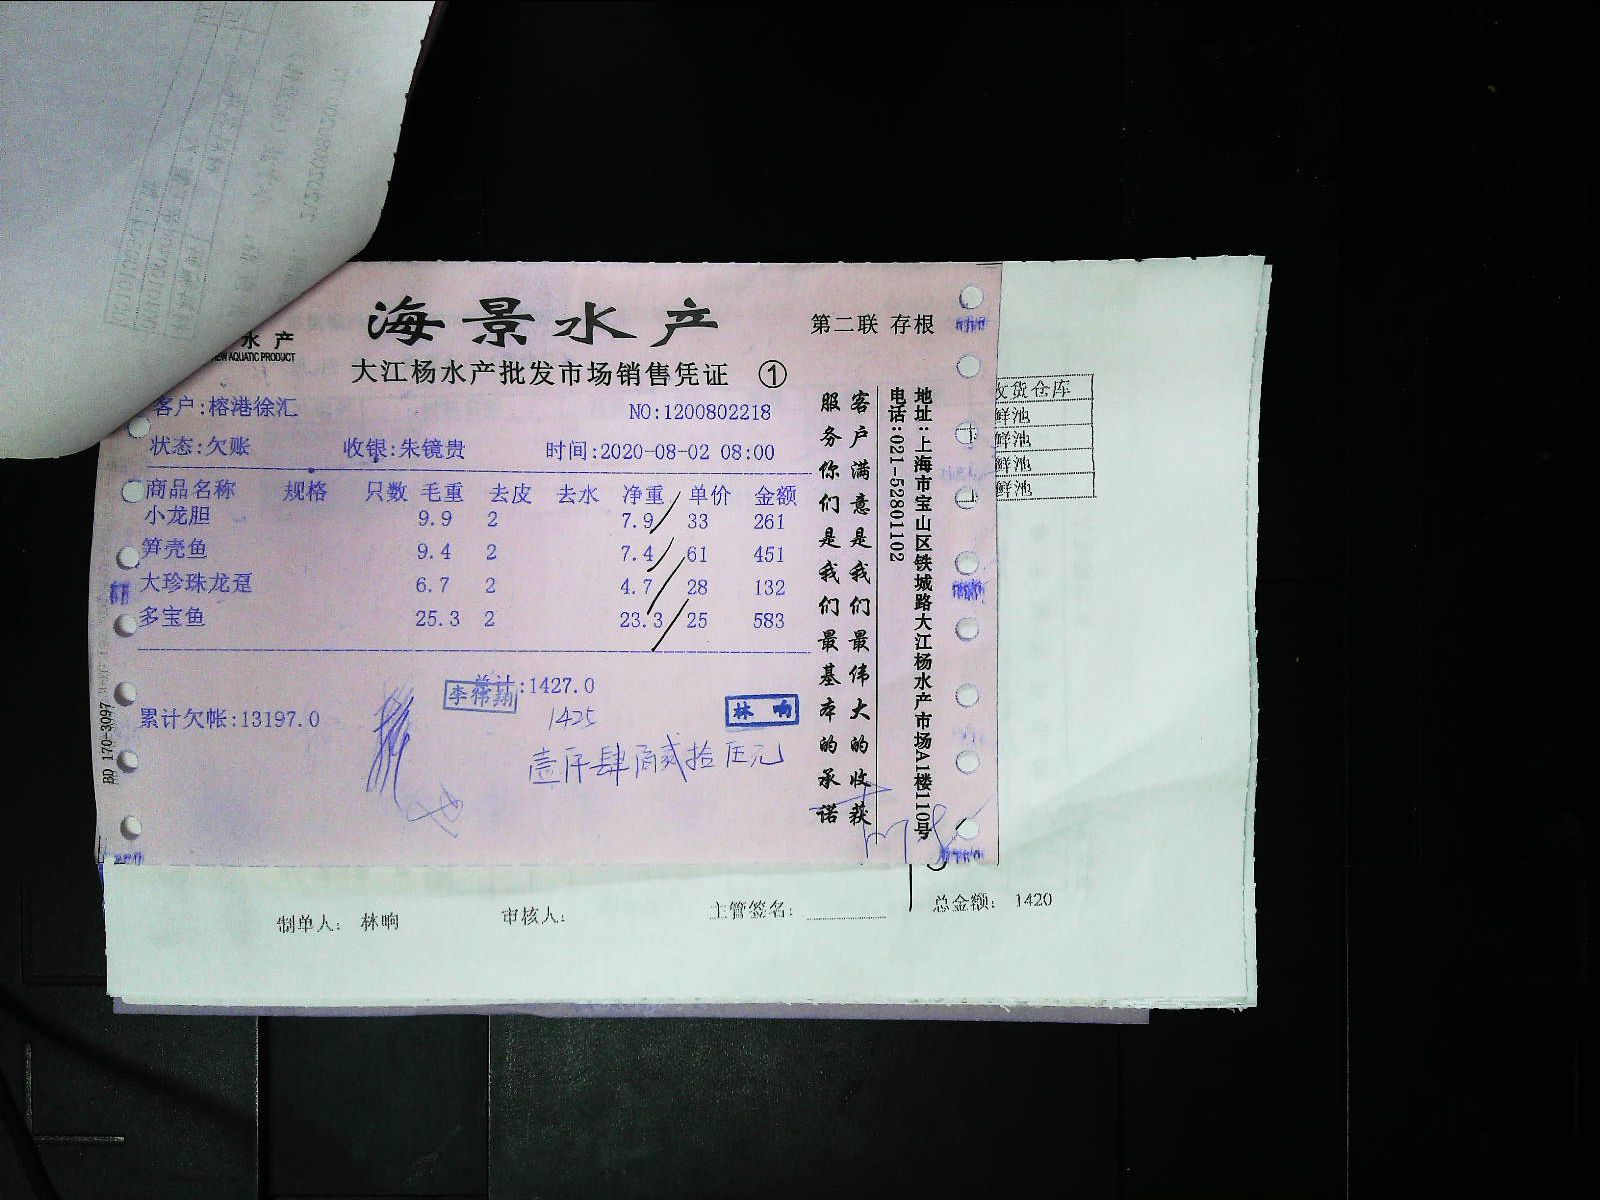 海景水产
第二联 存根
水产
AQUATIC PRODUCT
大江杨水产批发市场销售凭证 ①
客户:榕港徐汇 NO:1200802218
状态:欠账 收银:朱镜贵 时间:2020-08-02 08:00
商品名称 规格 只数 毛重 去皮 去水 净重 单价 金额
小龙胆 9.9 2 7.9 33 261
笋壳鱼 9.4 2 7.4 61 451
大珍珠龙趸 6.7 2 4.7 28 132
多宝鱼 25.3 2 23.3 25 583
总计:1427.0
李稀翔
累计欠帐:13197.0
1425
林响
壹仟肆佰贰拾伍元
客户满意是我们最伟大的收获
服务你们是我们最基本的承诺
地址:上海市宝山区铁城路大江杨水产市场A1楼110号
电话:021-52801102
BD 170-3097
收货仓库
鲜池
鲜池
鲜池
鲜池
制单人: 林响 审核人: 主管签名: 总金额: 1420